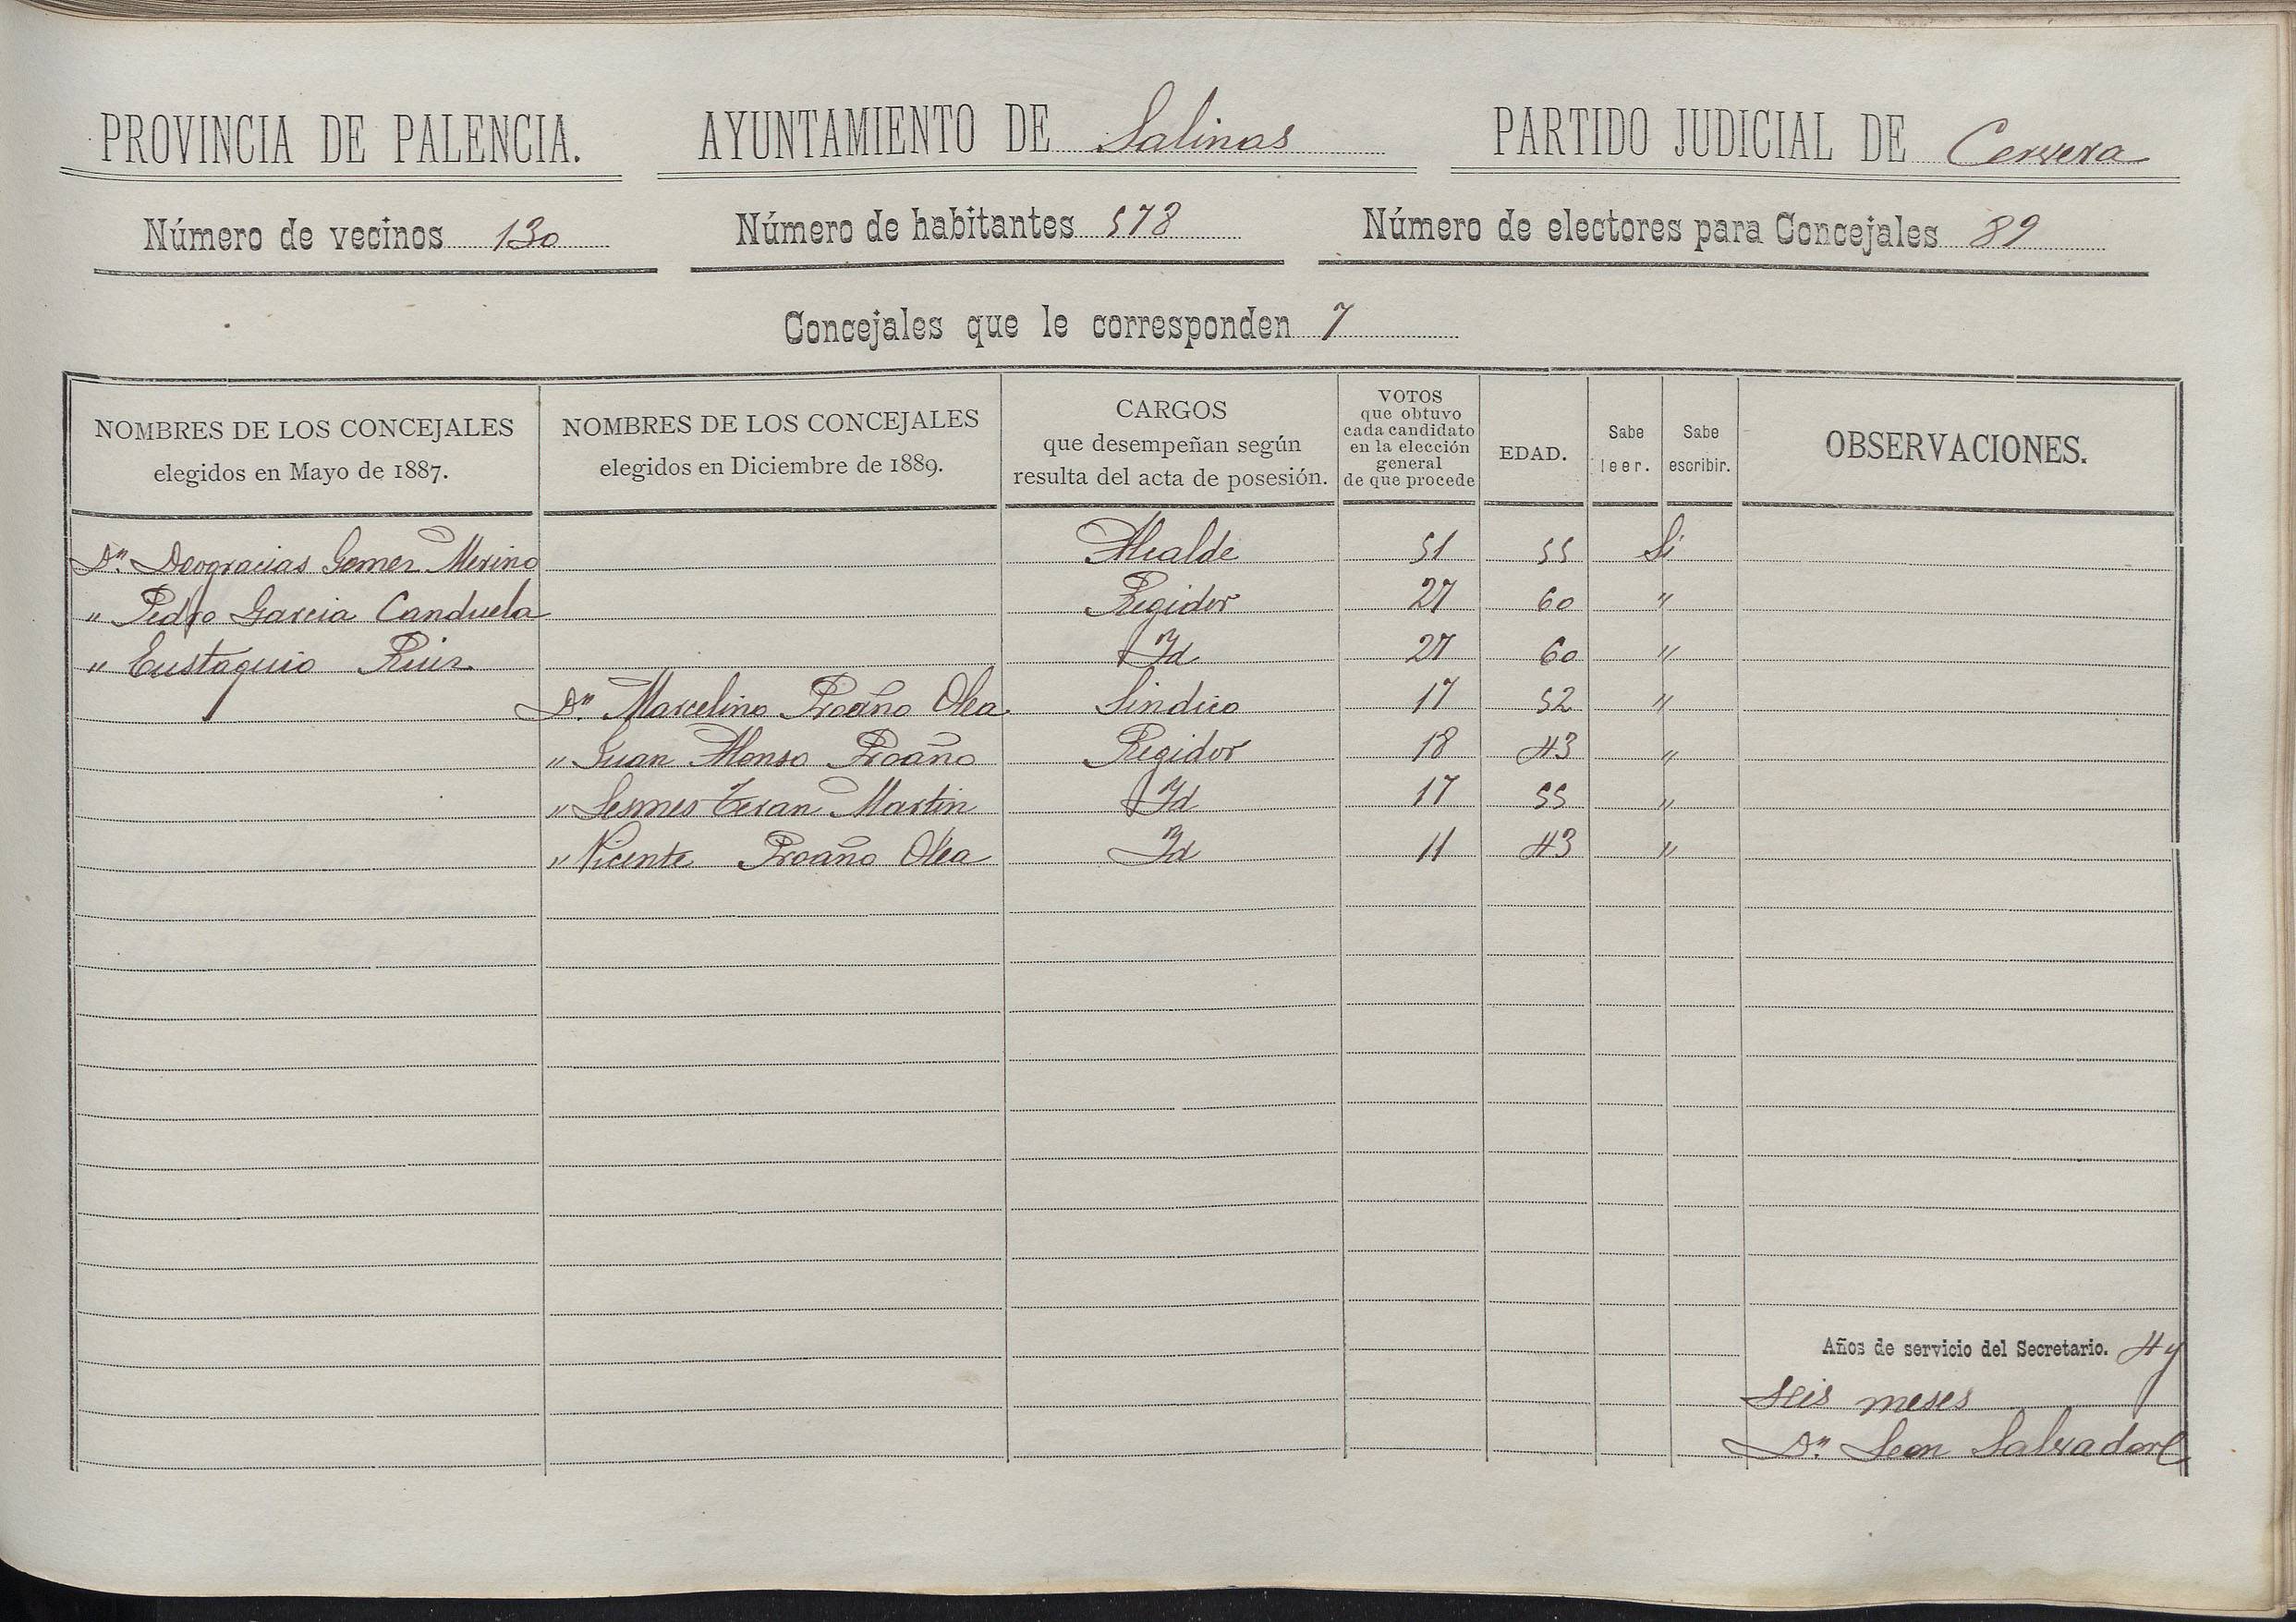 PROVINCIA DE PALENCIA. AYUNTAMIENTO DE Salinas PARTIDO JUDICIAL DE Cervera
Número de vecinos 130 Número de habitantes 578 Número de electores para Concejales 89
Concejales que le corresponden 7
NOMBRES DE LOS CONCEJALES elegidos en Mayo de 1887. NOMBRES DE LOS CONCEJALES elegidos en Diciembre de 1889. CARGOS que desempeñan según resulta del acta de posesión. VOTOS que obtuvo cada candidato en la elección general de que procede EDAD. Sabe leer. Sabe escribir. OBSERVACIONES.
Dn. Deogracias Gomez Merino Alcalde 51 55 Si
" Pedro Garcia Canduela Regidor 27 60 "
" Eustaquio Ruiz Id 27 60 "
Dn. Marcelino Proaño Olea Sindico 17 52 "
" Juan Alonso Proaño Regidor 18 43 "
" Sesmes Teran Martin Id 17 55 "
" Vicente Proaño Olea Id 11 43 "
Años de servicio del Secretario. 4 y
seis meses
Dn. Leon Salvador